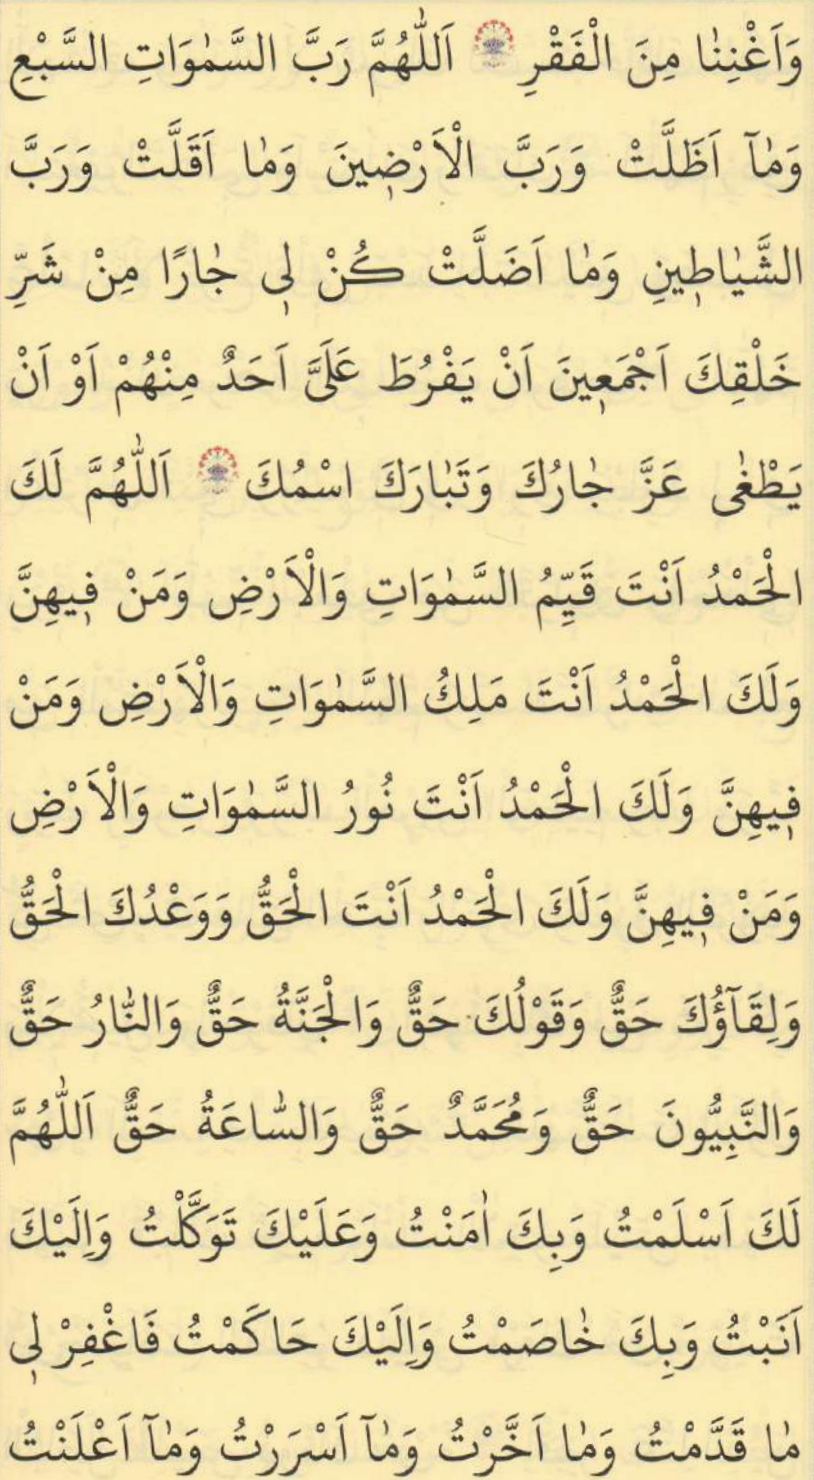 وَاَغْنِنٰا مِنَ الْفَقْرِ اَللّٰهُمَّ رَبَّ السَّمٰوَاتِ السَّبْعِ
وَمٰٓا اَظَلَّتْ وَرَبَّ الْاَرْضٖينَ وَمٰا اَقَلَّتْ وَرَبَّ
الشَّيٰاطٖينِ وَمٰا اَضَلَّتْ كُنْ لٖى جٰارًا مِنْ شَرِّ
خَلْقِكَ اَجْمَعٖينَ اَنْ يَفْرُطَ عَلَىَّ اَحَدٌ مِنْهُمْ اَوْ اَنْ
يَطْغٰى عَزَّ جٰارُكَ وَتَبٰارَكَ اسْمُكَ اَللّٰهُمَّ لَكَ
الْحَمْدُ اَنْتَ قَيِّمُ السَّمٰوَاتِ وَالْاَرْضِ وَمَنْ فٖيهِنَّ
وَلَكَ الْحَمْدُ اَنْتَ مَلِكُ السَّمٰوَاتِ وَالْاَرْضِ وَمَنْ
فٖيهِنَّ وَلَكَ الْحَمْدُ اَنْتَ نُورُ السَّمٰوَاتِ وَالْاَرْضِ
وَمَنْ فٖيهِنَّ وَلَكَ الْحَمْدُ اَنْتَ الْحَقُّ وَوَعْدُكَ الْحَقُّ
وَلِقَٓاؤُكَ حَقٌّ وَقَوْلُكَ حَقٌّ وَالْجَنَّةُ حَقٌّ وَالنّٰارُ حَقٌّ
وَالنَّبِيُّونَ حَقٌّ وَمُحَمَّدٌ حَقٌّ وَالسّٰاعَةُ حَقٌّ اَللّٰهُمَّ
لَكَ اَسْلَمْتُ وَبِكَ اٰمَنْتُ وَعَلَيْكَ تَوَكَّلْتُ وَاِلَيْكَ
اَنَبْتُ وَبِكَ خٰاصَمْتُ وَاِلَيْكَ حَاكَمْتُ فَاغْفِرْ لٖى
مٰا قَدَّمْتُ وَمٰا اَخَّرْتُ وَمٰٓا اَسْرَرْتُ وَمٰٓا اَعْلَنْتُ